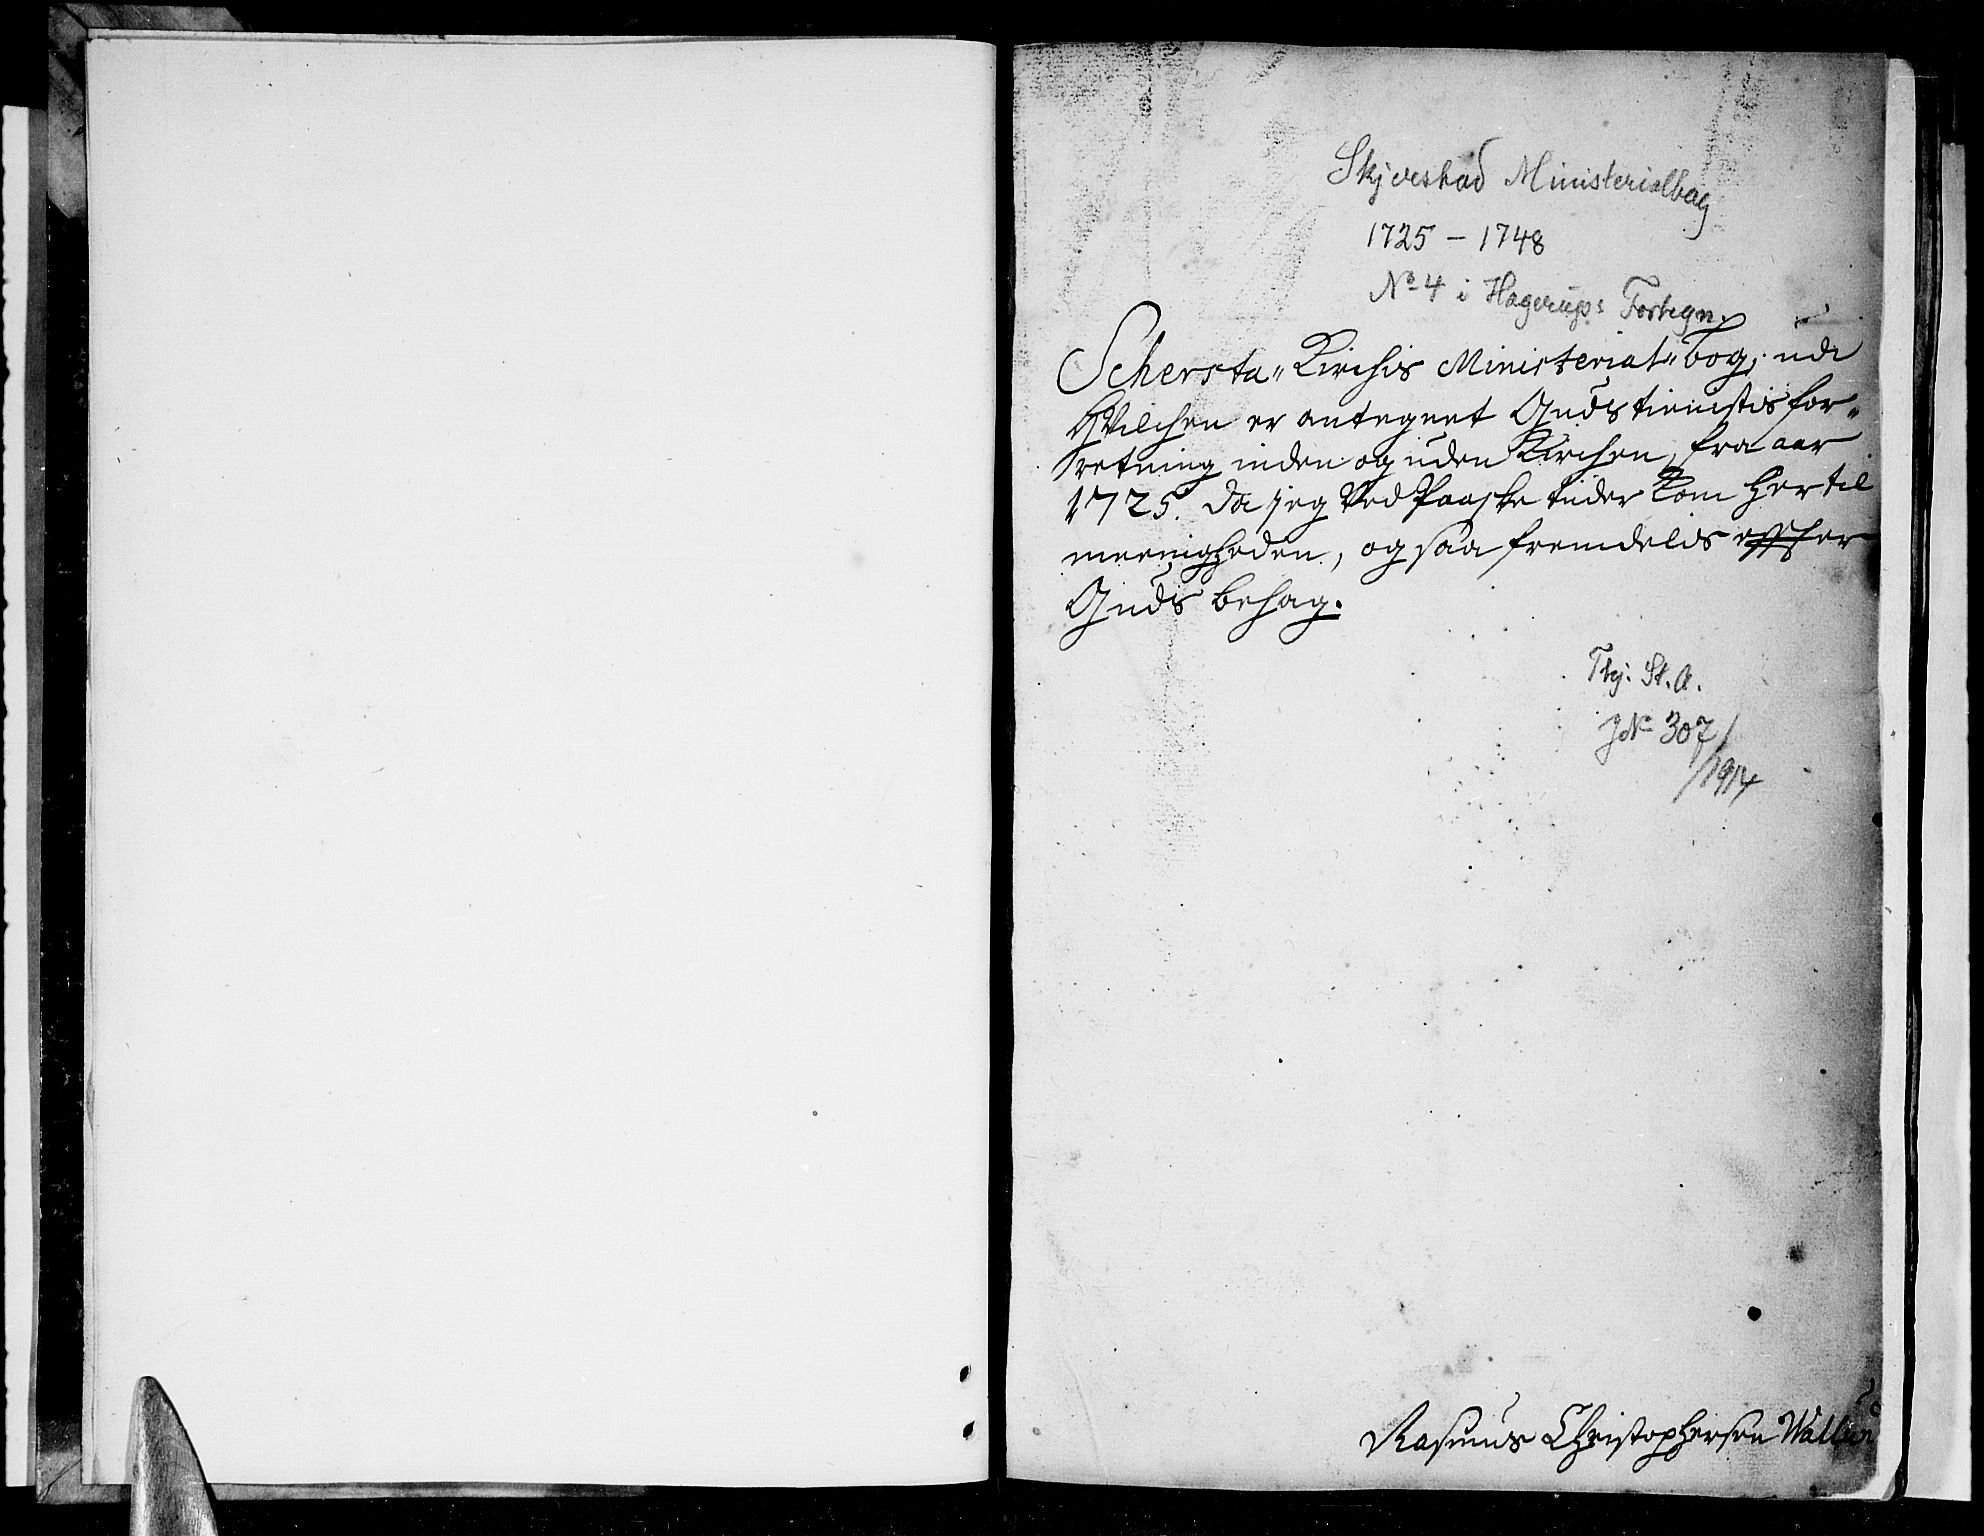 Skjerstad Ministerialbog
1725 - 1748
No 4 i Hagerups Fortegn.
Schersta„ Kirchis Ministerial„ Bog, udi
Hvilchen er antegnet Guds tienistis for„
retning inden og uden Kirchen, fra aar
1725. da jeg Ved Paaske tider kom her til
meenigheden, og saa fremdelis effter
Guds behag.
Thj. St. A.
J.No 307/
/1914
Rasmus Christophersen